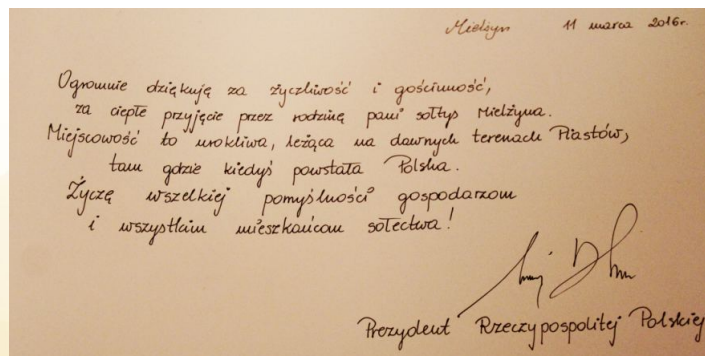 Mielżyn 11 marca 2016r.
Ogromnie dziękuję za życzliwość i gościnność,
za ciepłe przyjęcie przez rodzinę pani sołtys Mielżyna.
Miejscowość to urokliwa, leżąca na dawnych terenach Piastów,
tam gdzie kiedyś powstała Polska.
Życzę wszelkiej pomyślności gospodarzom
i wszystkim mieszkańcom sołectwa!
Prezydent Rzeczypospolitej Polskiej